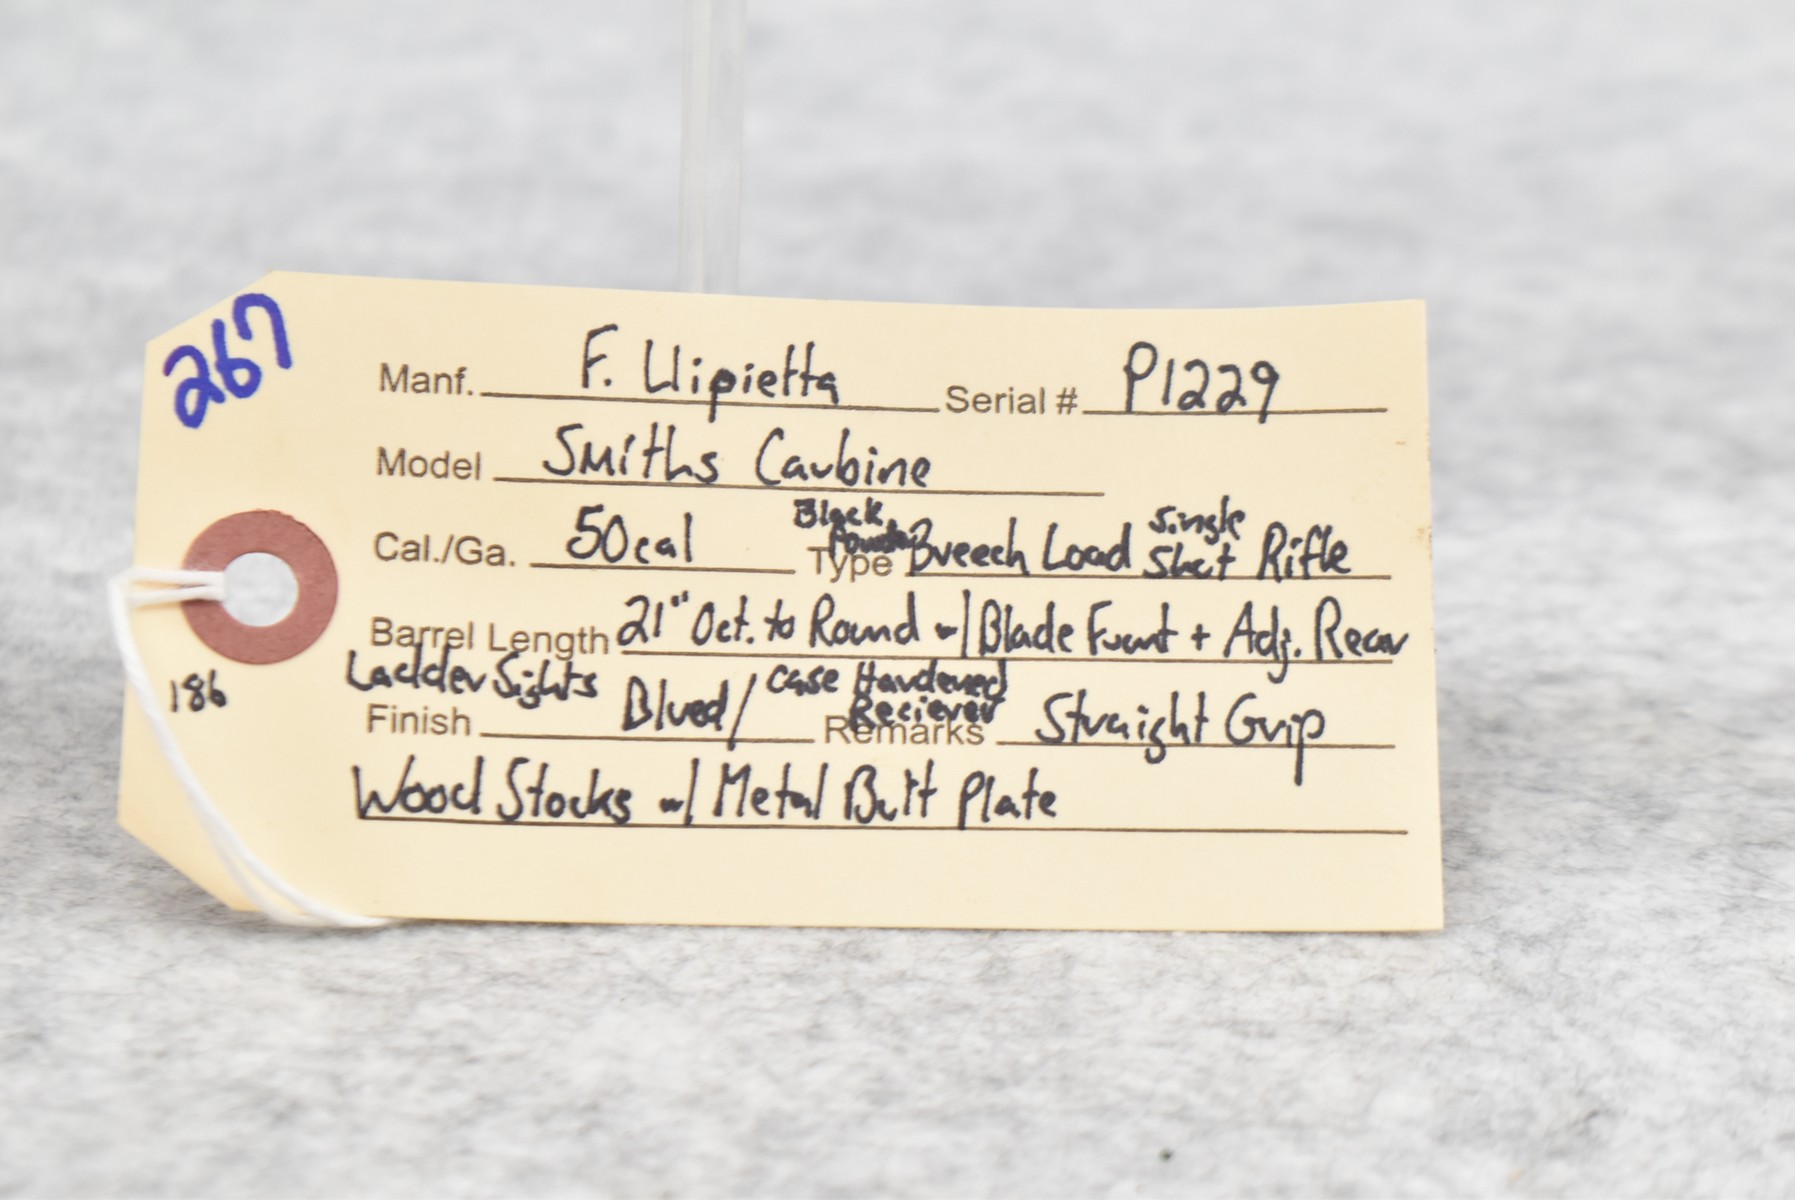 267
Manf. F. Llipietta Serial # P1229
Model Smiths Carbine
Cal./Ga. 50cal Type Black Powder Breech Load Single Shot Rifle
Barrel Length 21" Oct. to Round w/ Blade Front + Adj. Rear
Ladder Sights
186
Finish Blued/ Case Hardened Reciever Remarks Straight Grip
Wood Stocks w/ Metal Butt Plate